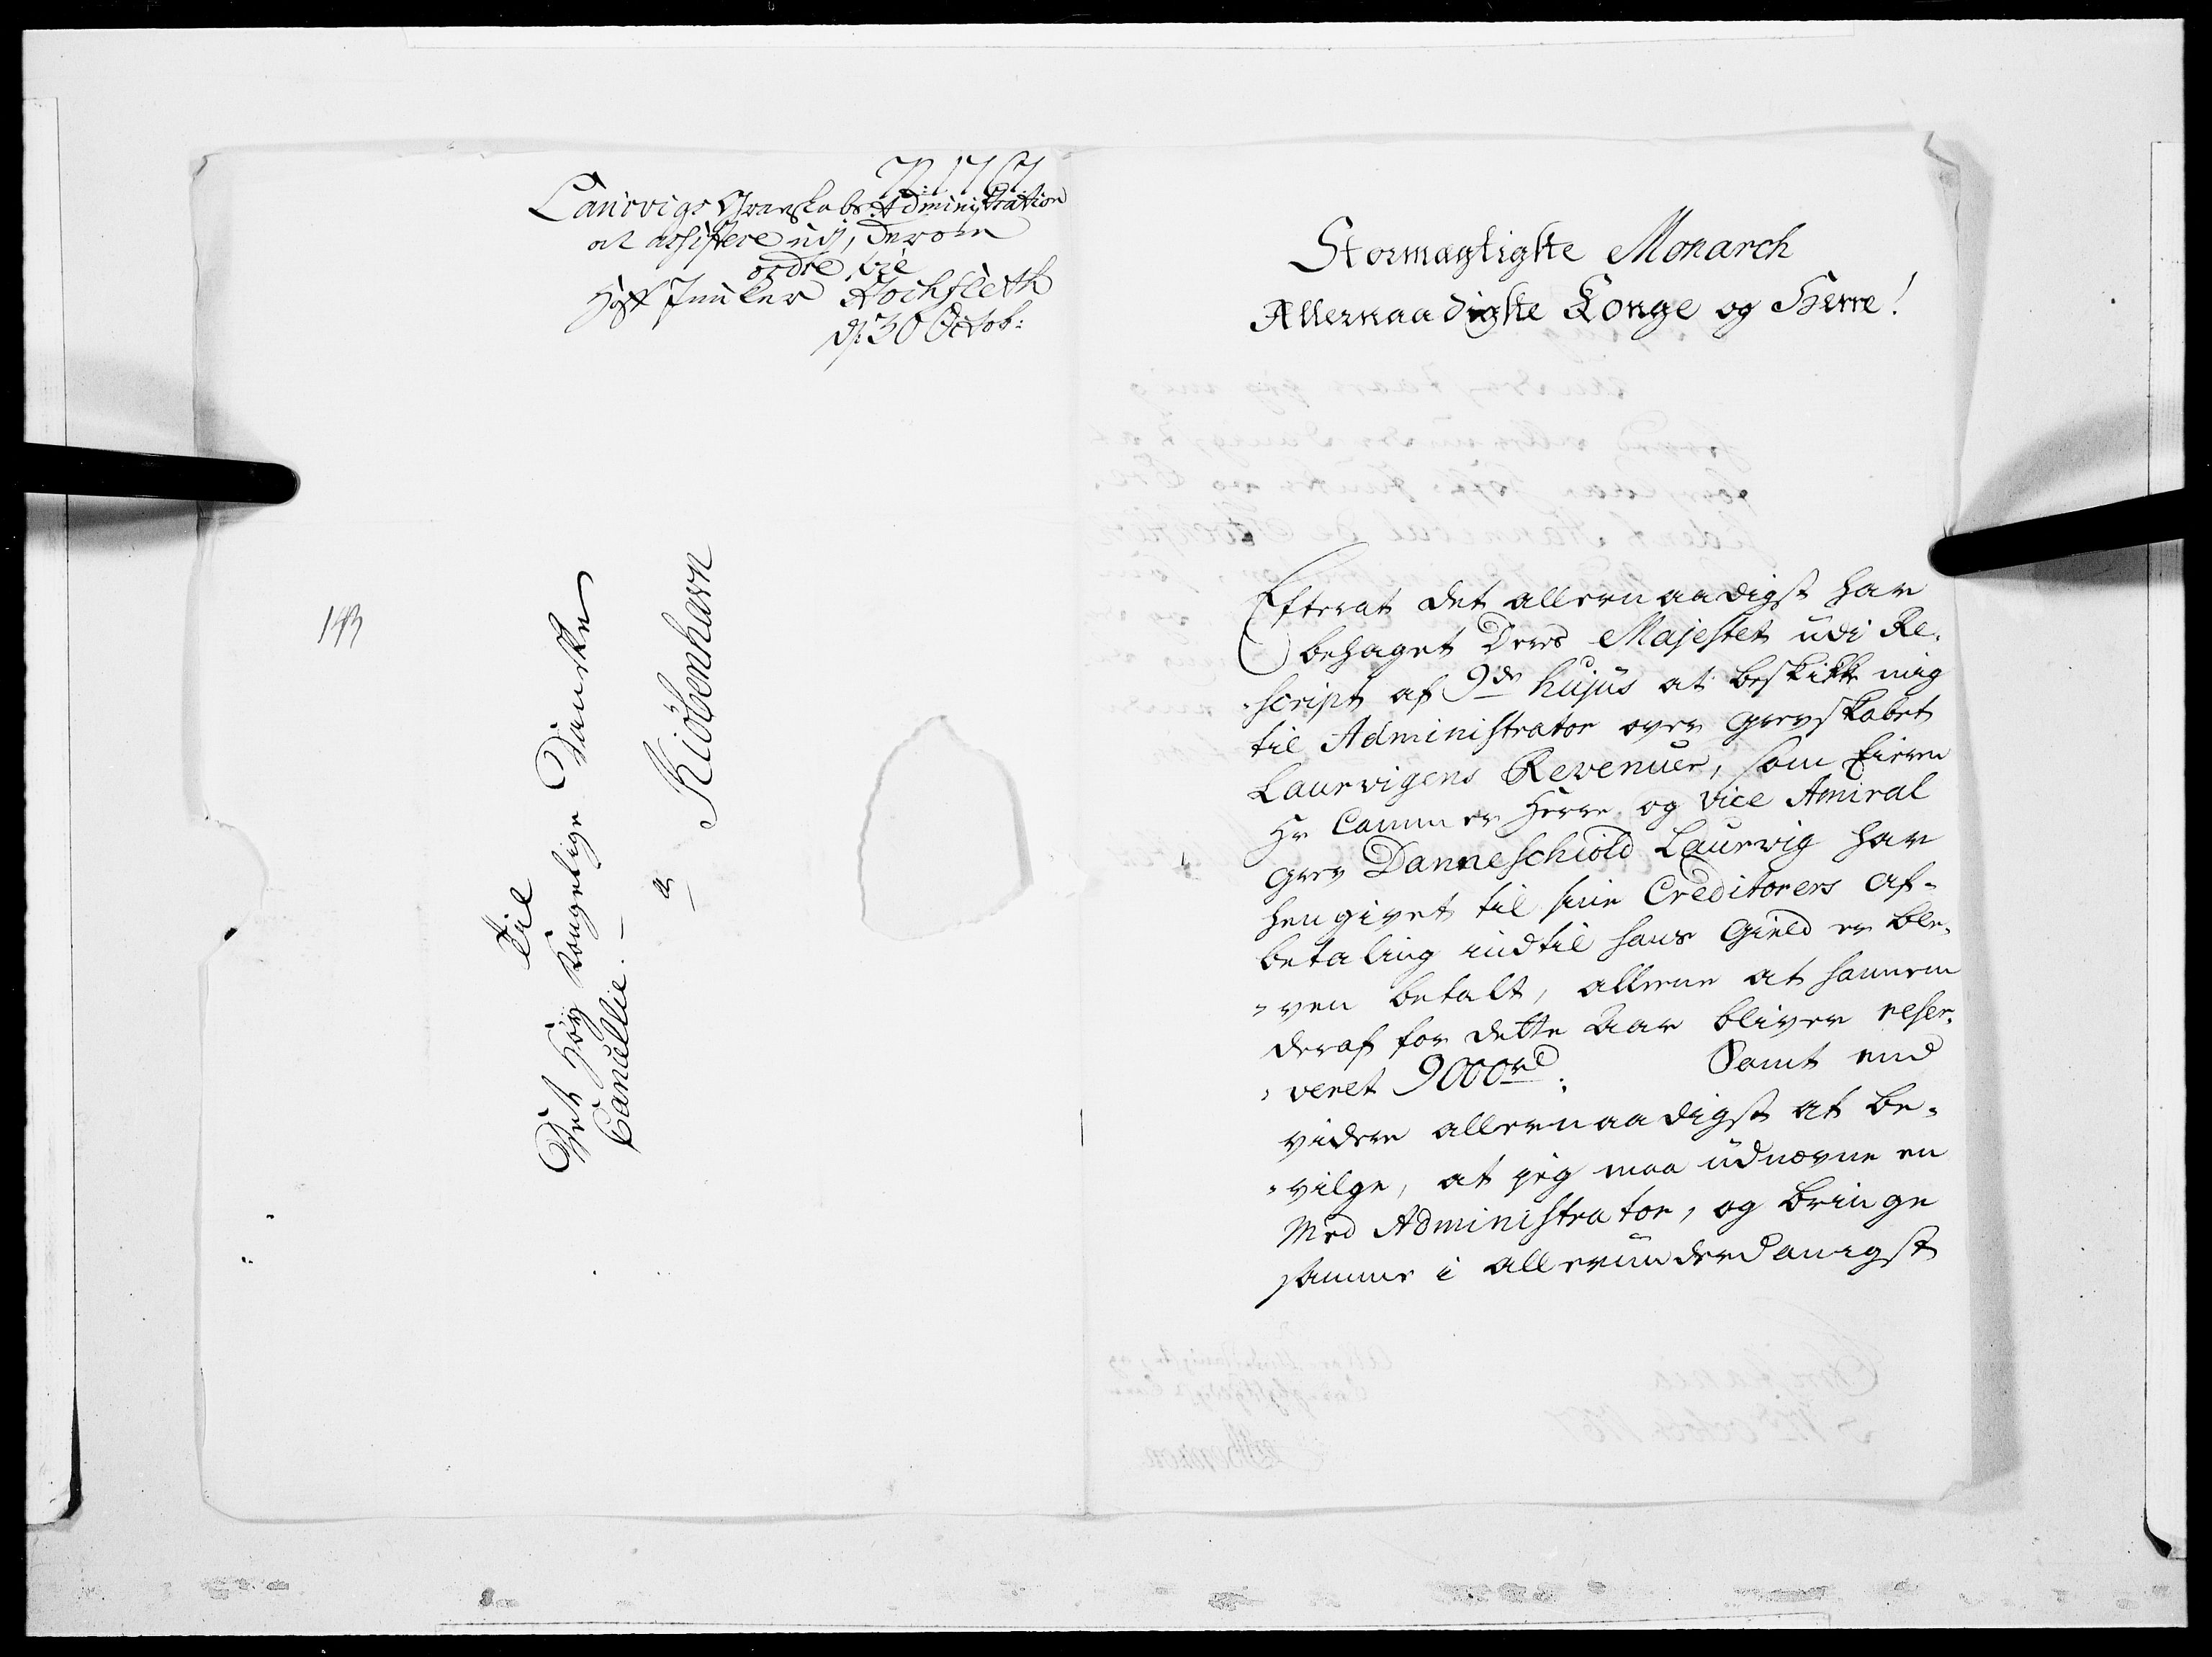 1767.
Laurvigs Grevskabs Administration
at assistere udj, derom
ordre til
Hoff Junker Hochfleth
d: 30 Octob:
143
Til
Det Høy Kongelige Danske
Cancellie. —
a
Kiöbenhavn
Stormægtigste Monarch
Allernaadigste Konge og Herre!
Efterat det allernaadigst har
behaget Deres Majestet udi Re-
script af 9de hujus at beskikke mig
til Administrator over Grevskabet
Laurvigens Revenuer, som Eieren
Hr Cammer Herre og Vice Amiral
Grev Danneschiold Laurvig har
hengivet til sine Creditorers af-
betaling indtil hans Gield er ble-
ven betalt, allene at hannem
deraf for dette Aar bliver reser-
veret 9000rd. Samt end
videre allernaadigst at be-
vilge, at jeg maa udnævne en
Med Administrator, og bringe
samme i allerunderdanigst